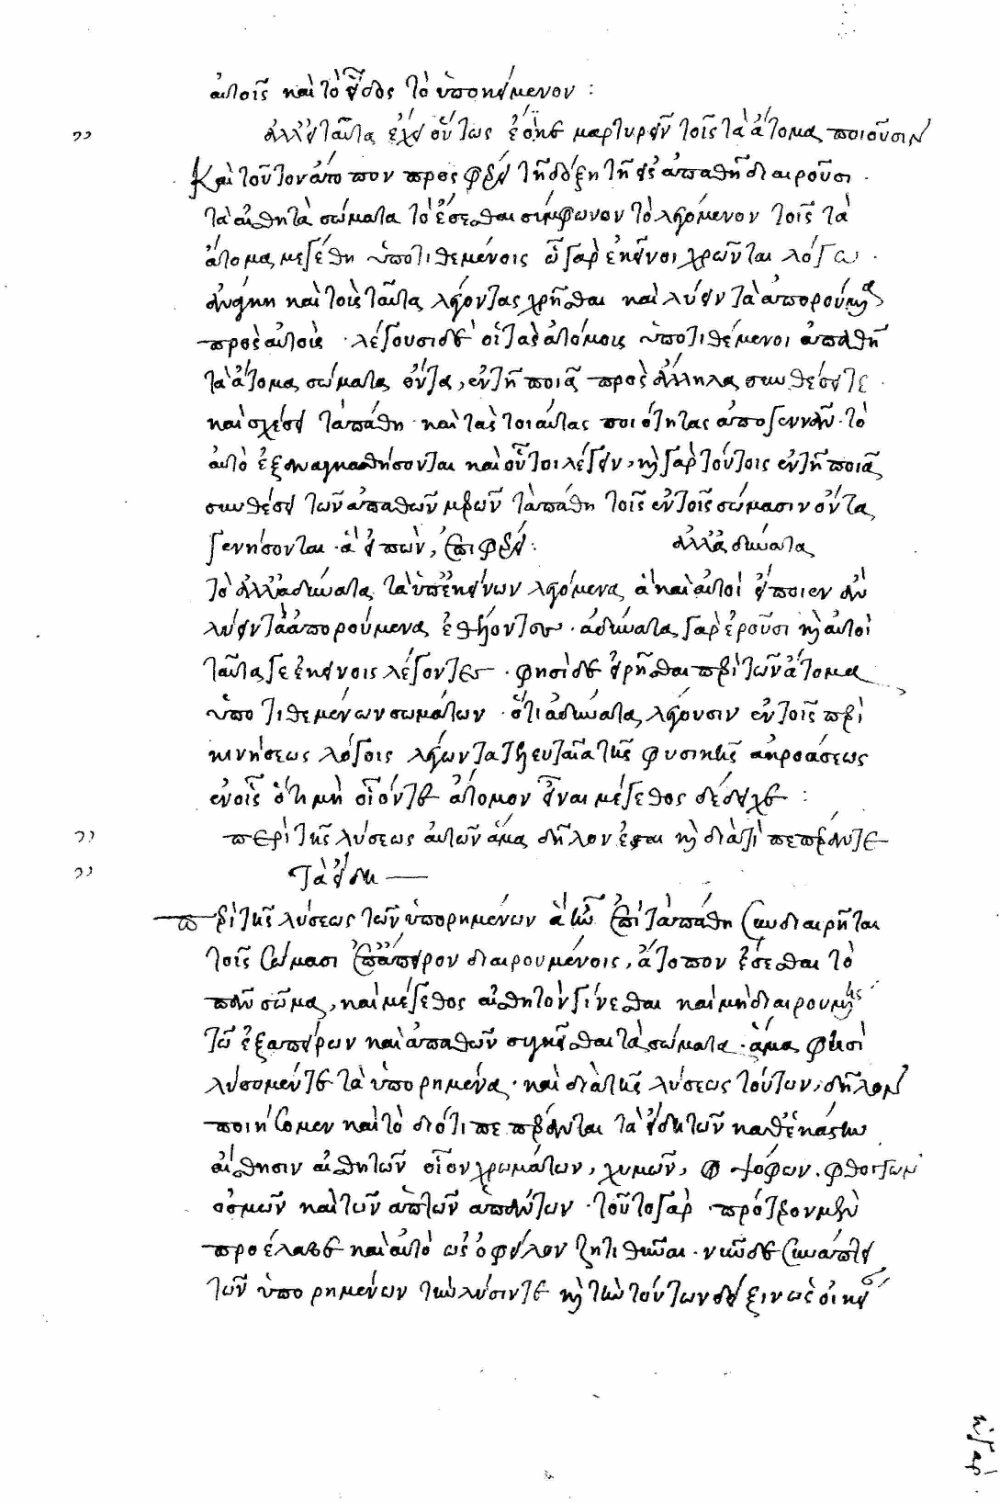 αὐτοῖς καὶ τὸ εἶδος τὸ ὑποκείμενον :
ἀλλ' εἰ ταῦτα ἔχει οὕτως ἔοικε μαρτυρεῖν τοῖς τὰ ἄτομα ποιοῦσιν
Καὶ τοῦτον ἄτοπον προσφέρει τῇ δόξῃ τῇ εἰς ἀπαθῆ διαιροῦσι .
τὰ αἰσθητὰ σώματα τὸ ἔσεσθαι σύμφωνον τὸ λεγόμενον τοῖς τὰ
ἄτομα μεγέθη ὑποτιθεμένοις ᾧ γὰρ ἐκεῖνοι χρῶνται λόγω .
ἀνάγκη καὶ τοὺς ταῦτα λέγοντας χρῆσθαι καὶ λύειν τὰ ἀπορούμενα
πρὸς αὐτούς . λέγουσι δὲ οἱ τὰς ἀτόμους ὑποτιθέμενοι ἀπαθῆ
τὰ ἄτομα σώματα ὄντα, ἐν τῇ ποιᾷ πρὸς ἄλληλα συνθέσει τε .
καὶ σχέσει τὰ πάθη καὶ τὰς τοιαύτας ποιότητας ἀπογεννᾶν . τὸ
αὐτὸ ἐξαναγκασθήσονται καὶ οὗτοι λέγειν, καὶ γὰρ τούτοις ἐν τῇ ποιᾷ
συνθέσει τῶν ἀπαθῶν μερῶν τὰ πάθη τοῖς ἐν τοῖς σώμασιν ὄντα
γενήσονται . ἃ εἰπὼν, ἐπιφέρει : ἀλλ' ἀδύνατα
τὸ ἀλλ' ἀδύνατα τὰ ὑπ' ἐκείνων λεγόμενα ἃ καὶ αὐτοὶ εἴποιεν ἂν
λύειν τὰ ἀπορούμενα ἐθέλοντες . ἀδύνατα γὰρ ἐροῦσι καὶ αὐτοὶ
ταῦτά γε ἐκείνοις λέγοντες . φησὶ δὲ εἰρῆσθαι περὶ τῶν ἄτομα
ὑποτιθεμένων σωμάτων . ὅτι ἀδύνατα λέγουσιν ἐν τοῖς περὶ
κινήσεως λόγοις λέγων τὰ τελευταῖα τῆς φυσικῆς ἀκροάσεως
ἐν οἷς ὅτι μὴ οἷόν τε ἄτομον εἶναι μέγεθος δέδειχε :
περὶ τῆς λύσεως αὐτῶν ἅμα δῆλον ἔσται καὶ διὰ τί πεπέρανται
τὰ εἴδη
περὶ τῆς λύσεως τῶν ἠπορημένων ἃ ἦν ἐπεὶ τὰ πάθη συνδιαιρεῖται
τοῖς σώμασι ἐπ' ἄπειρον διαιρουμένοις, ἄτοπον ἔσεσθαι τὸ
πᾶν σῶμα, καὶ μέγεθος αἰσθητὸν γίνεσθαι καὶ μὴ διαιρουμένης
τῶ ἐξ ἀπείρων καὶ ἀπαθῶν συγκεῖσθαι τὰ σώματα . ἅμα φησὶ
λύσομέν τε τὰ ἠπορημένα . καὶ διὰ τῆς λύσεως τούτων, δῆλον
ποιήσομεν καὶ τὸ διότι πεπέρανται τὰ εἴδη τῶν καθ' ἑκάστην
αἴσθησιν αἰσθητῶν οἷον χρωμάτων, χυμῶν, ψόφων . φθόγγων
ὀσμῶν καὶ τῶν ἁπτῶν ἁπάντων . τοῦτο γὰρ πρότερον μὲν
προέλαβε καὶ αὐτὸ ὡς ὀφεῖλον ζητηθῆναι . νῦν δὲ συνάπτει
τῶν ἠπορημένων τὴν λύσιν τε καὶ τὴν τούτων δεῖξιν ὡς οἰκεί
ἡ γὰρ